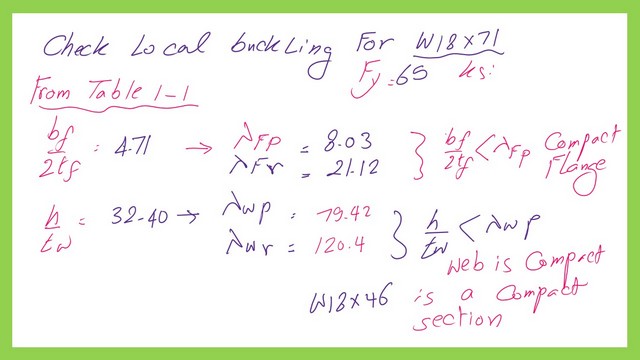 Check Local buckling For W18x71
Fy = 65 ksi
From Table 1-1
bf/2tf = 4.71 → λFp = 8.03 } bf/2tf < λFp Compact Flange
λFr = 21.12
h/tw = 32.40 → λwp = 79.42 } h/tw < λwp
λwr = 120.4
web is Compact
W18x46 is a Compact
section